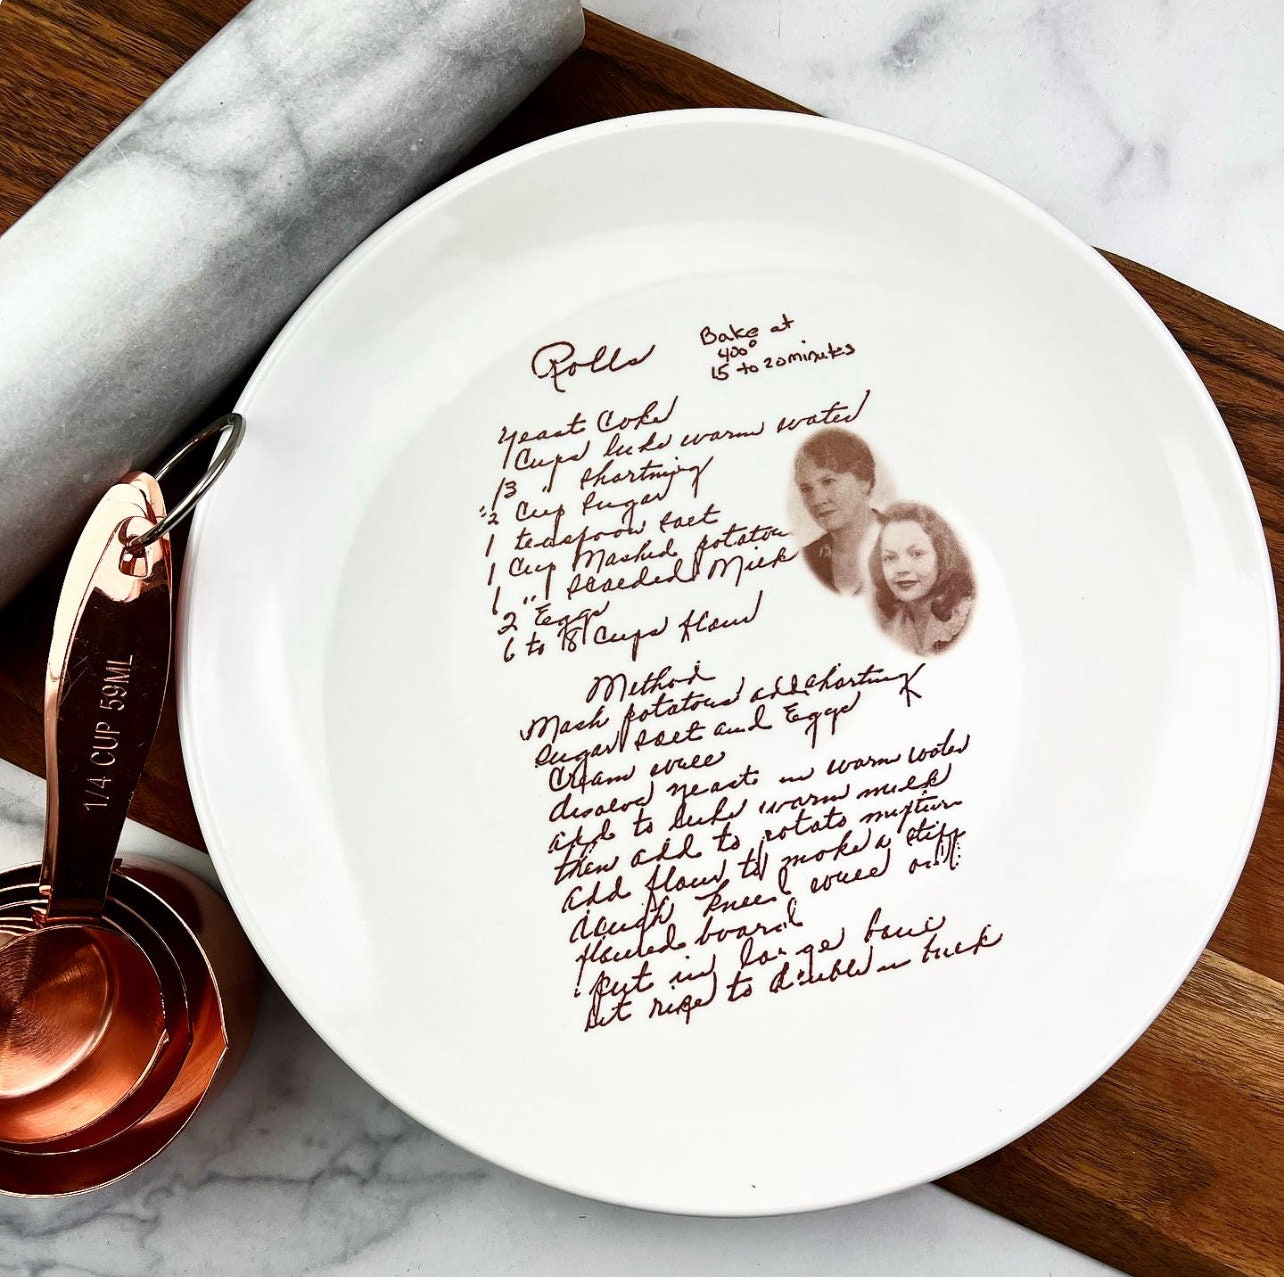 Rolls
Bake at
400°
15 to 20 minutes
yeast Coke
1 Cups luke warm water
13 " shortning
1/2 Cup Sugar
1 teaspoon salt
1 Cup Mashed potatoes
1 " scalded Milk
2 Eggs
6 to 8 Cups flour
Method
Mash potatoes add shortning
sugar salt and Eggs
Cream well
desolve yeast in warm water
add to luke warm milk
then add to potato mixture
add flour to make a stiff
dough knead well on
floured board
put in large bowl
let rise to double in bulk
1/4 CUP 59ML